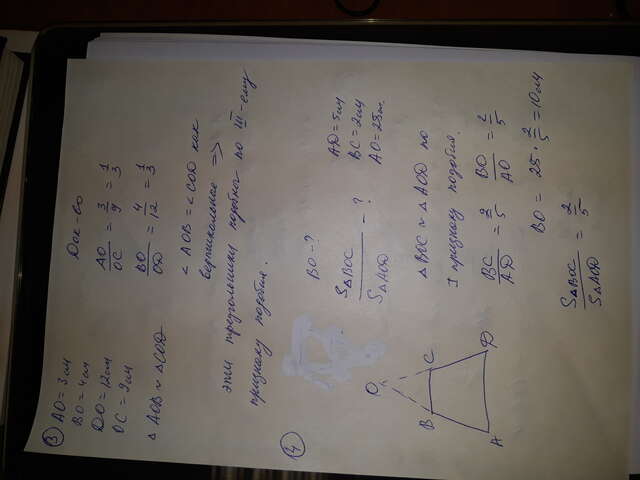 ③ AO = 3 см
BO = 4 см
DO = 12 см
OC = 9 см
△ AOB ~ △COD
Док-во
AO/OC = 3/9 = 1/3
BO/OD = 4/12 = 1/3
∠ AOB = ∠COD как
вертикальные =>
эти треугольники подобног по III-ему
признаку подобия.
④
BO - ?
S△BOC/S△AOD - ?
AD = 5 см
BC = 2 см
AO = 25 см.
O
B C
A D
△BOC ~ △AOD по
I признаку подобия.
BC/AD = 2/5 BO/AO = 2/5
BO = 25 · 2/5 = 10 см
S△BOC/S△AOD = 2/5